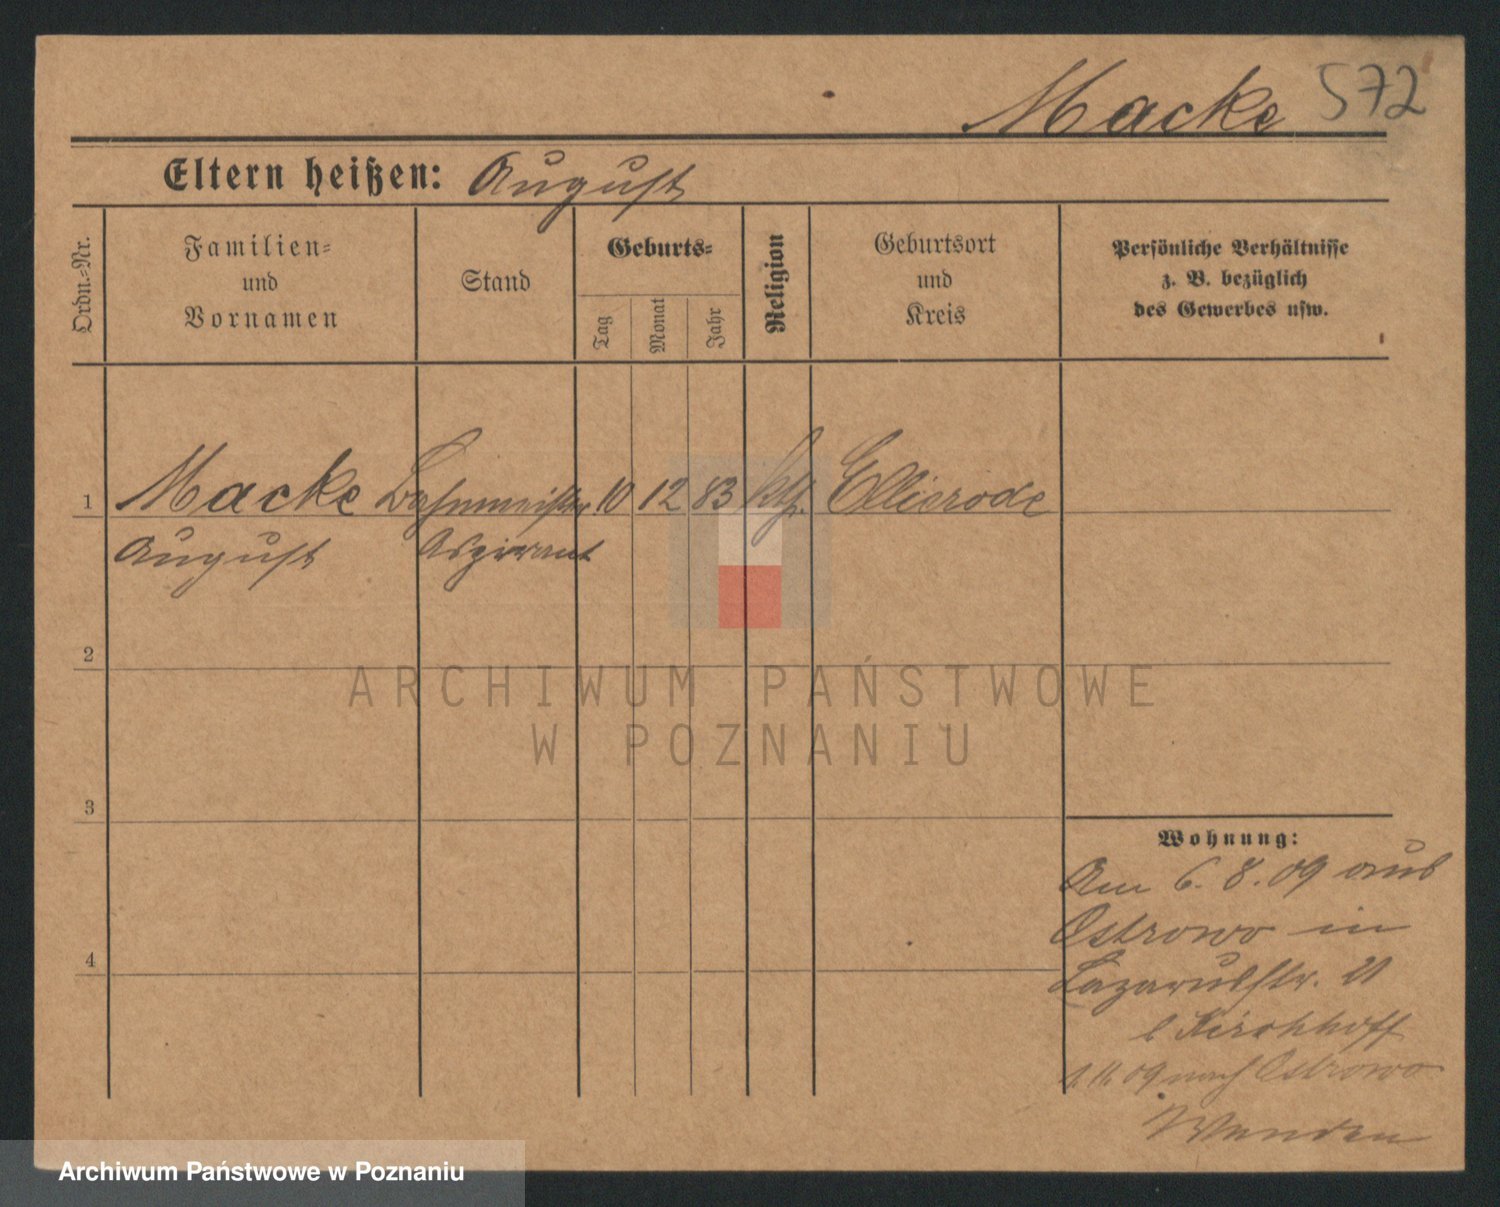 Macke 572
Eltern heißen: August
Ordn.=Nr.
Familien=
und
Vornamen
Stand
Geburts=
Tag
Monat
Jahr
Religion
Geburtsort
und
Kreis
Persönliche Verhältnisse
z. B. bezüglich
des Gewerbes usw.
1 Macke Bahnmeister 10 12 83 kth. Ellierode
August Aspirant
2
3
4
Wohnung:
Am 6. 8. 09 aus
Ostrowo in
Lazarusstr. 21
b Kirchhoff
1. 11. 09 nach Ostrowo
Wenden
ARCHIWUM PAŃSTWOWE
W POZNANIU
Archiwum Państwowe w Poznaniu